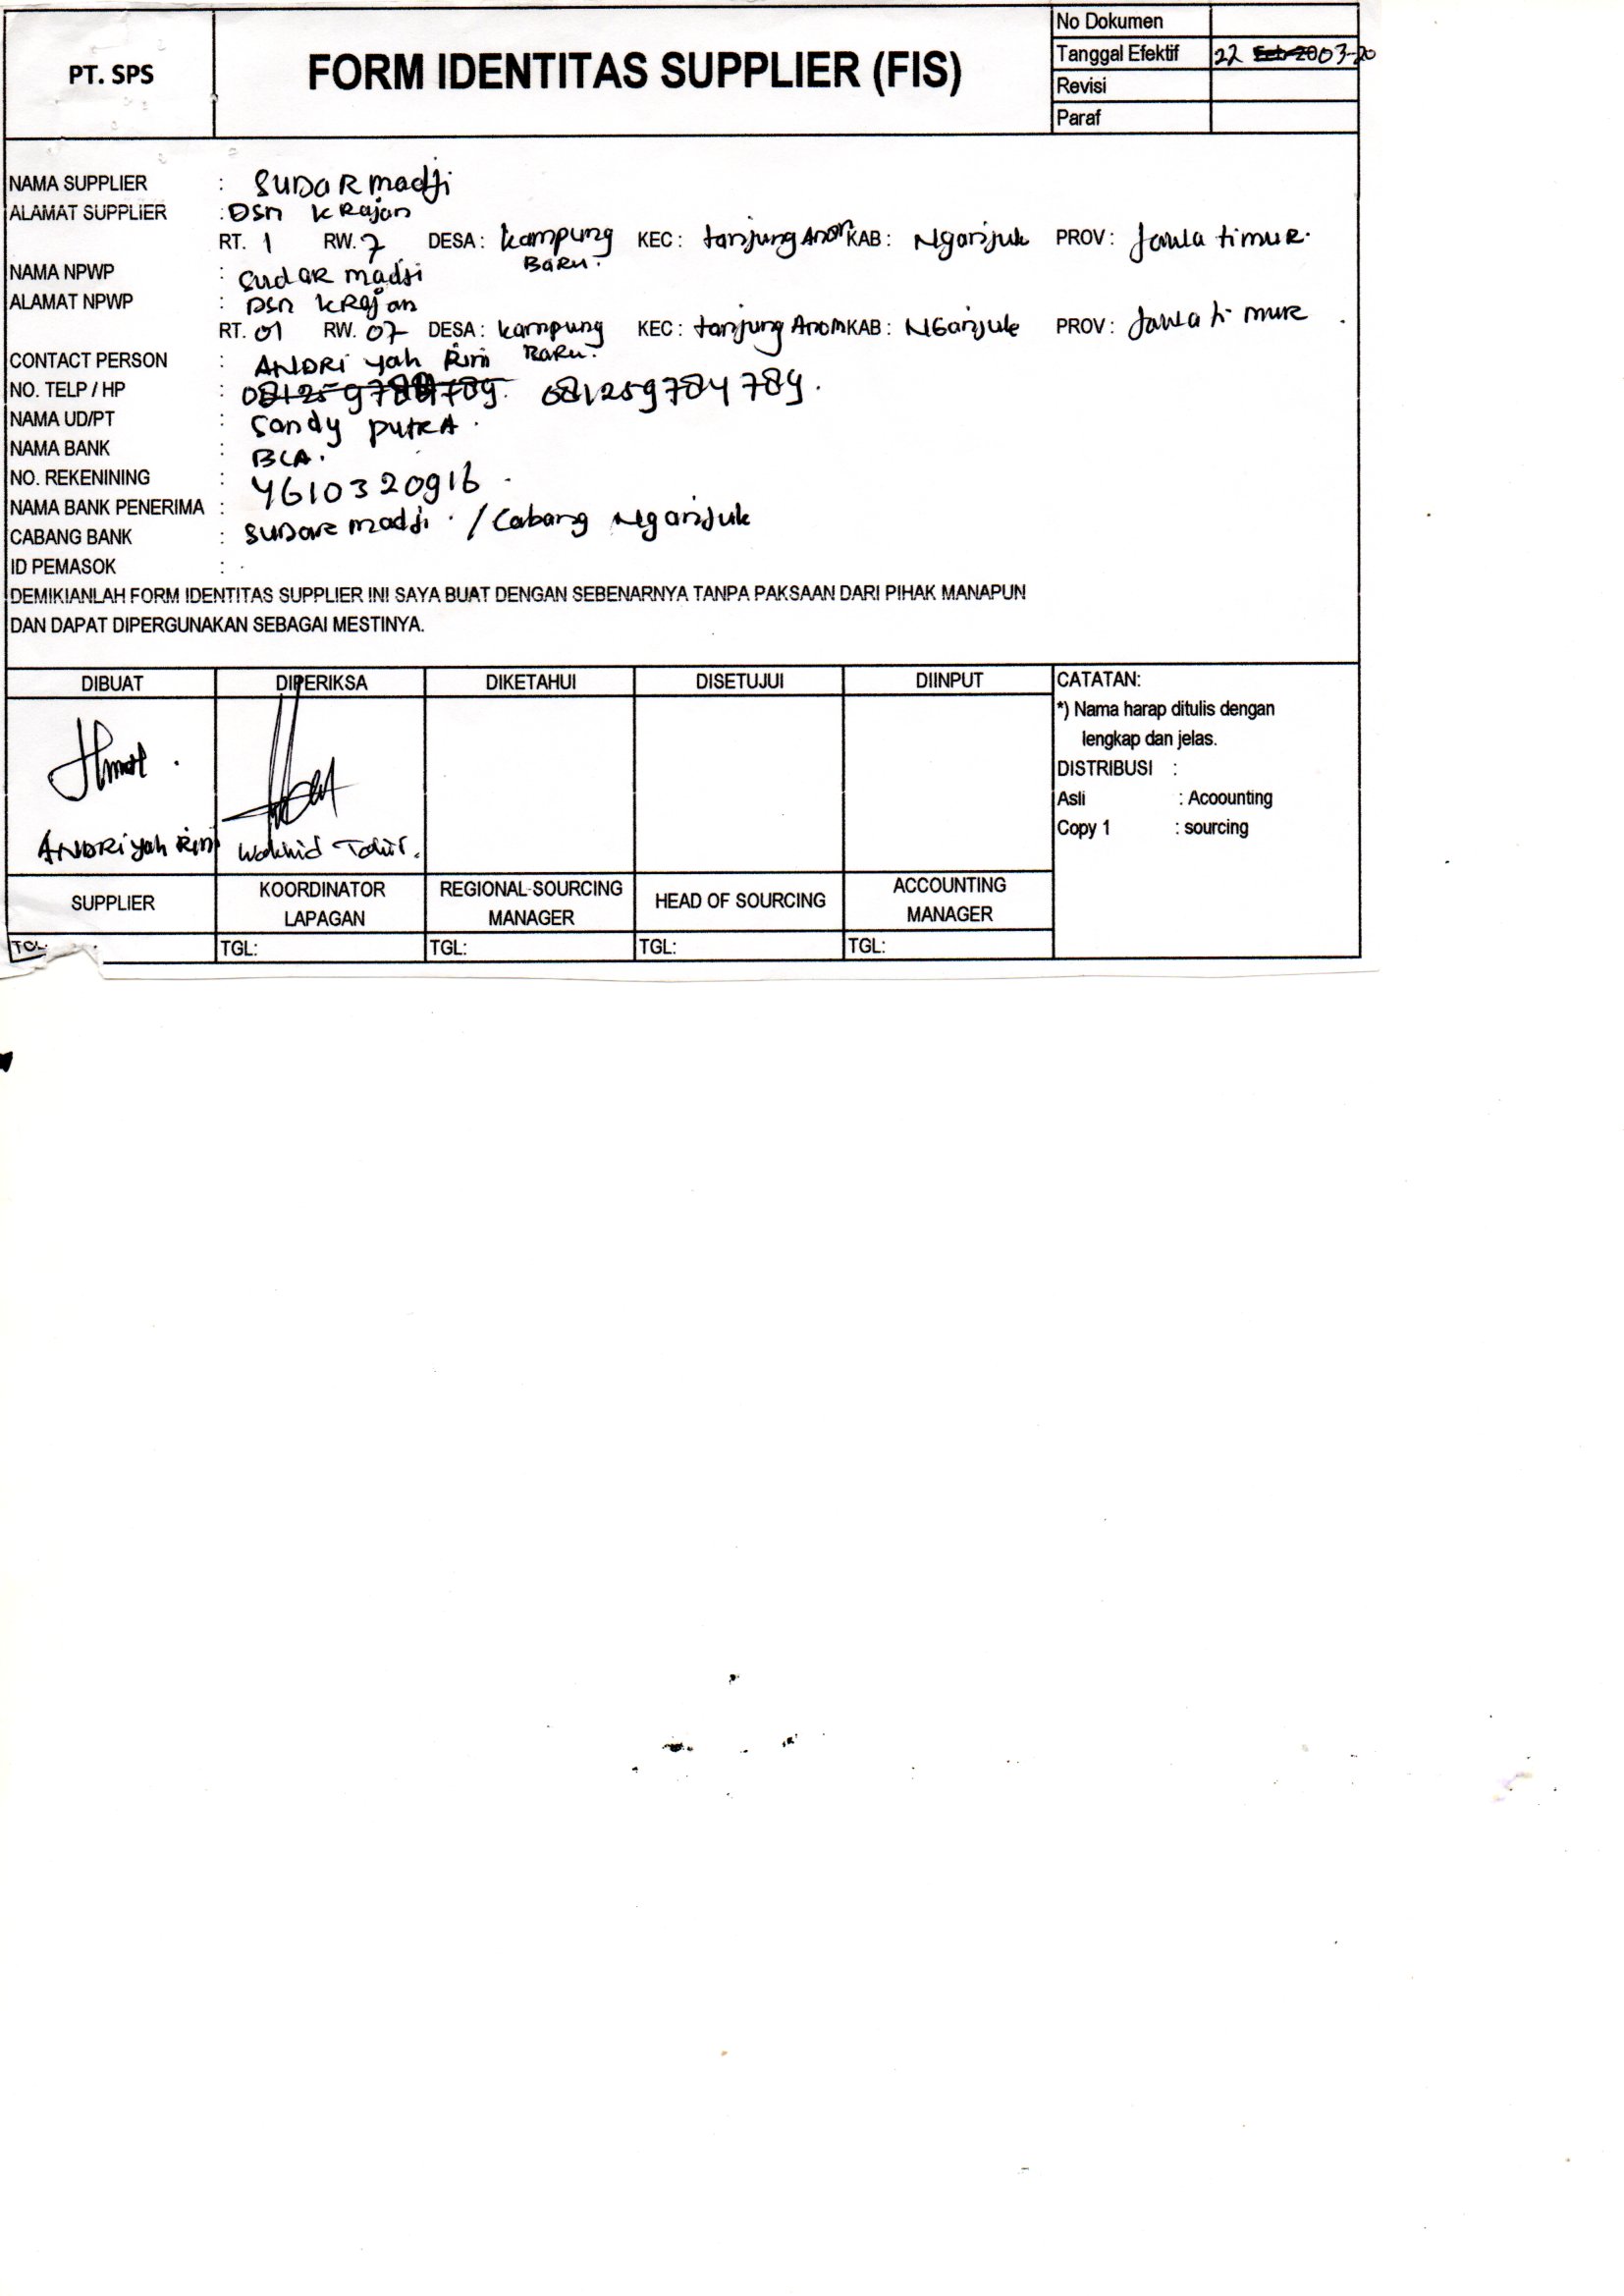 PT. SPS
FORM IDENTITAS SUPPLIER (FIS)
No Dokumen
Tanggal Efektif 22 03-20
Revisi
Paraf
NAMA SUPPLIER : SUDARmadji
ALAMAT SUPPLIER : DSn KRajan
RT. 1 RW. 7 DESA : kampung BaRu. KEC : tanjung Anom KAB : Nganjuk PROV : Jawa timuR.
NAMA NPWP : SudaR madji
ALAMAT NPWP : DSn kRajan
RT. 01 RW. 07 DESA : kampung BaRu. KEC : tanjung Anom KAB : NGanjuk PROV : Jawa timur.
CONTACT PERSON : ANDRi yah Rini
NO. TELP / HP : 081259784789.
NAMA UD/PT : Sandy putRA.
NAMA BANK : BCA.
NO. REKENINING : 4610320916.
NAMA BANK PENERIMA :
CABANG BANK : SUDAR madji. / Cabang Nganjuk
ID PEMASOK :
DEMIKIANLAH FORM IDENTITAS SUPPLIER INI SAYA BUAT DENGAN SEBENARNYA TANPA PAKSAAN DARI PIHAK MANAPUN
DAN DAPAT DIPERGUNAKAN SEBAGAI MESTINYA.
DIBUAT DIPERIKSA DIKETAHUI DISETUJUI DIINPUT
ANDRi yah Rini Wakhid
SUPPLIER
KOORDINATOR
LAPAGAN
REGIONAL SOURCING
MANAGER
HEAD OF SOURCING
ACCOUNTING
MANAGER
TGL: TGL: TGL: TGL: TGL:
CATATAN:
*) Nama harap ditulis dengan
lengkap dan jelas.
DISTRIBUSI :
Asli : Acoounting
Copy 1 : sourcing